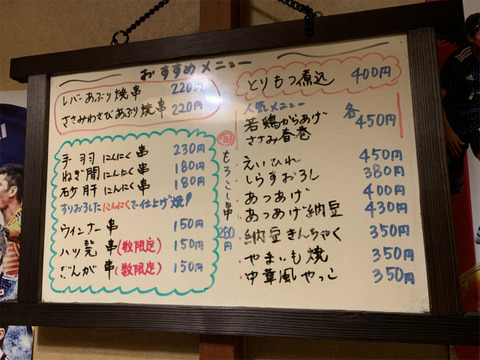 おすすめメニュー
レバーあぶり焼串 220円
ささみわさびあぶり焼串 220円
手羽にんにく串 230円
ねぎ間にんにく串 180円
砂肝にんにく串 180円
すりおろしたにんにくで仕上げ焼!
ウインナー串 150円
ハツ元串(数限定) 150円
ぎんが串(数限定) 150円
もろこし串 280円
とりもつ煮込 400円
人気メニュー
若鶏からあげ
ささみ春巻
各450円
えいひれ 450円
しらすおろし 380円
あつあげ 400円
あつあげ納豆 430円
納豆きんちゃく 350円
やまいも焼 350円
中華風やっこ 350円